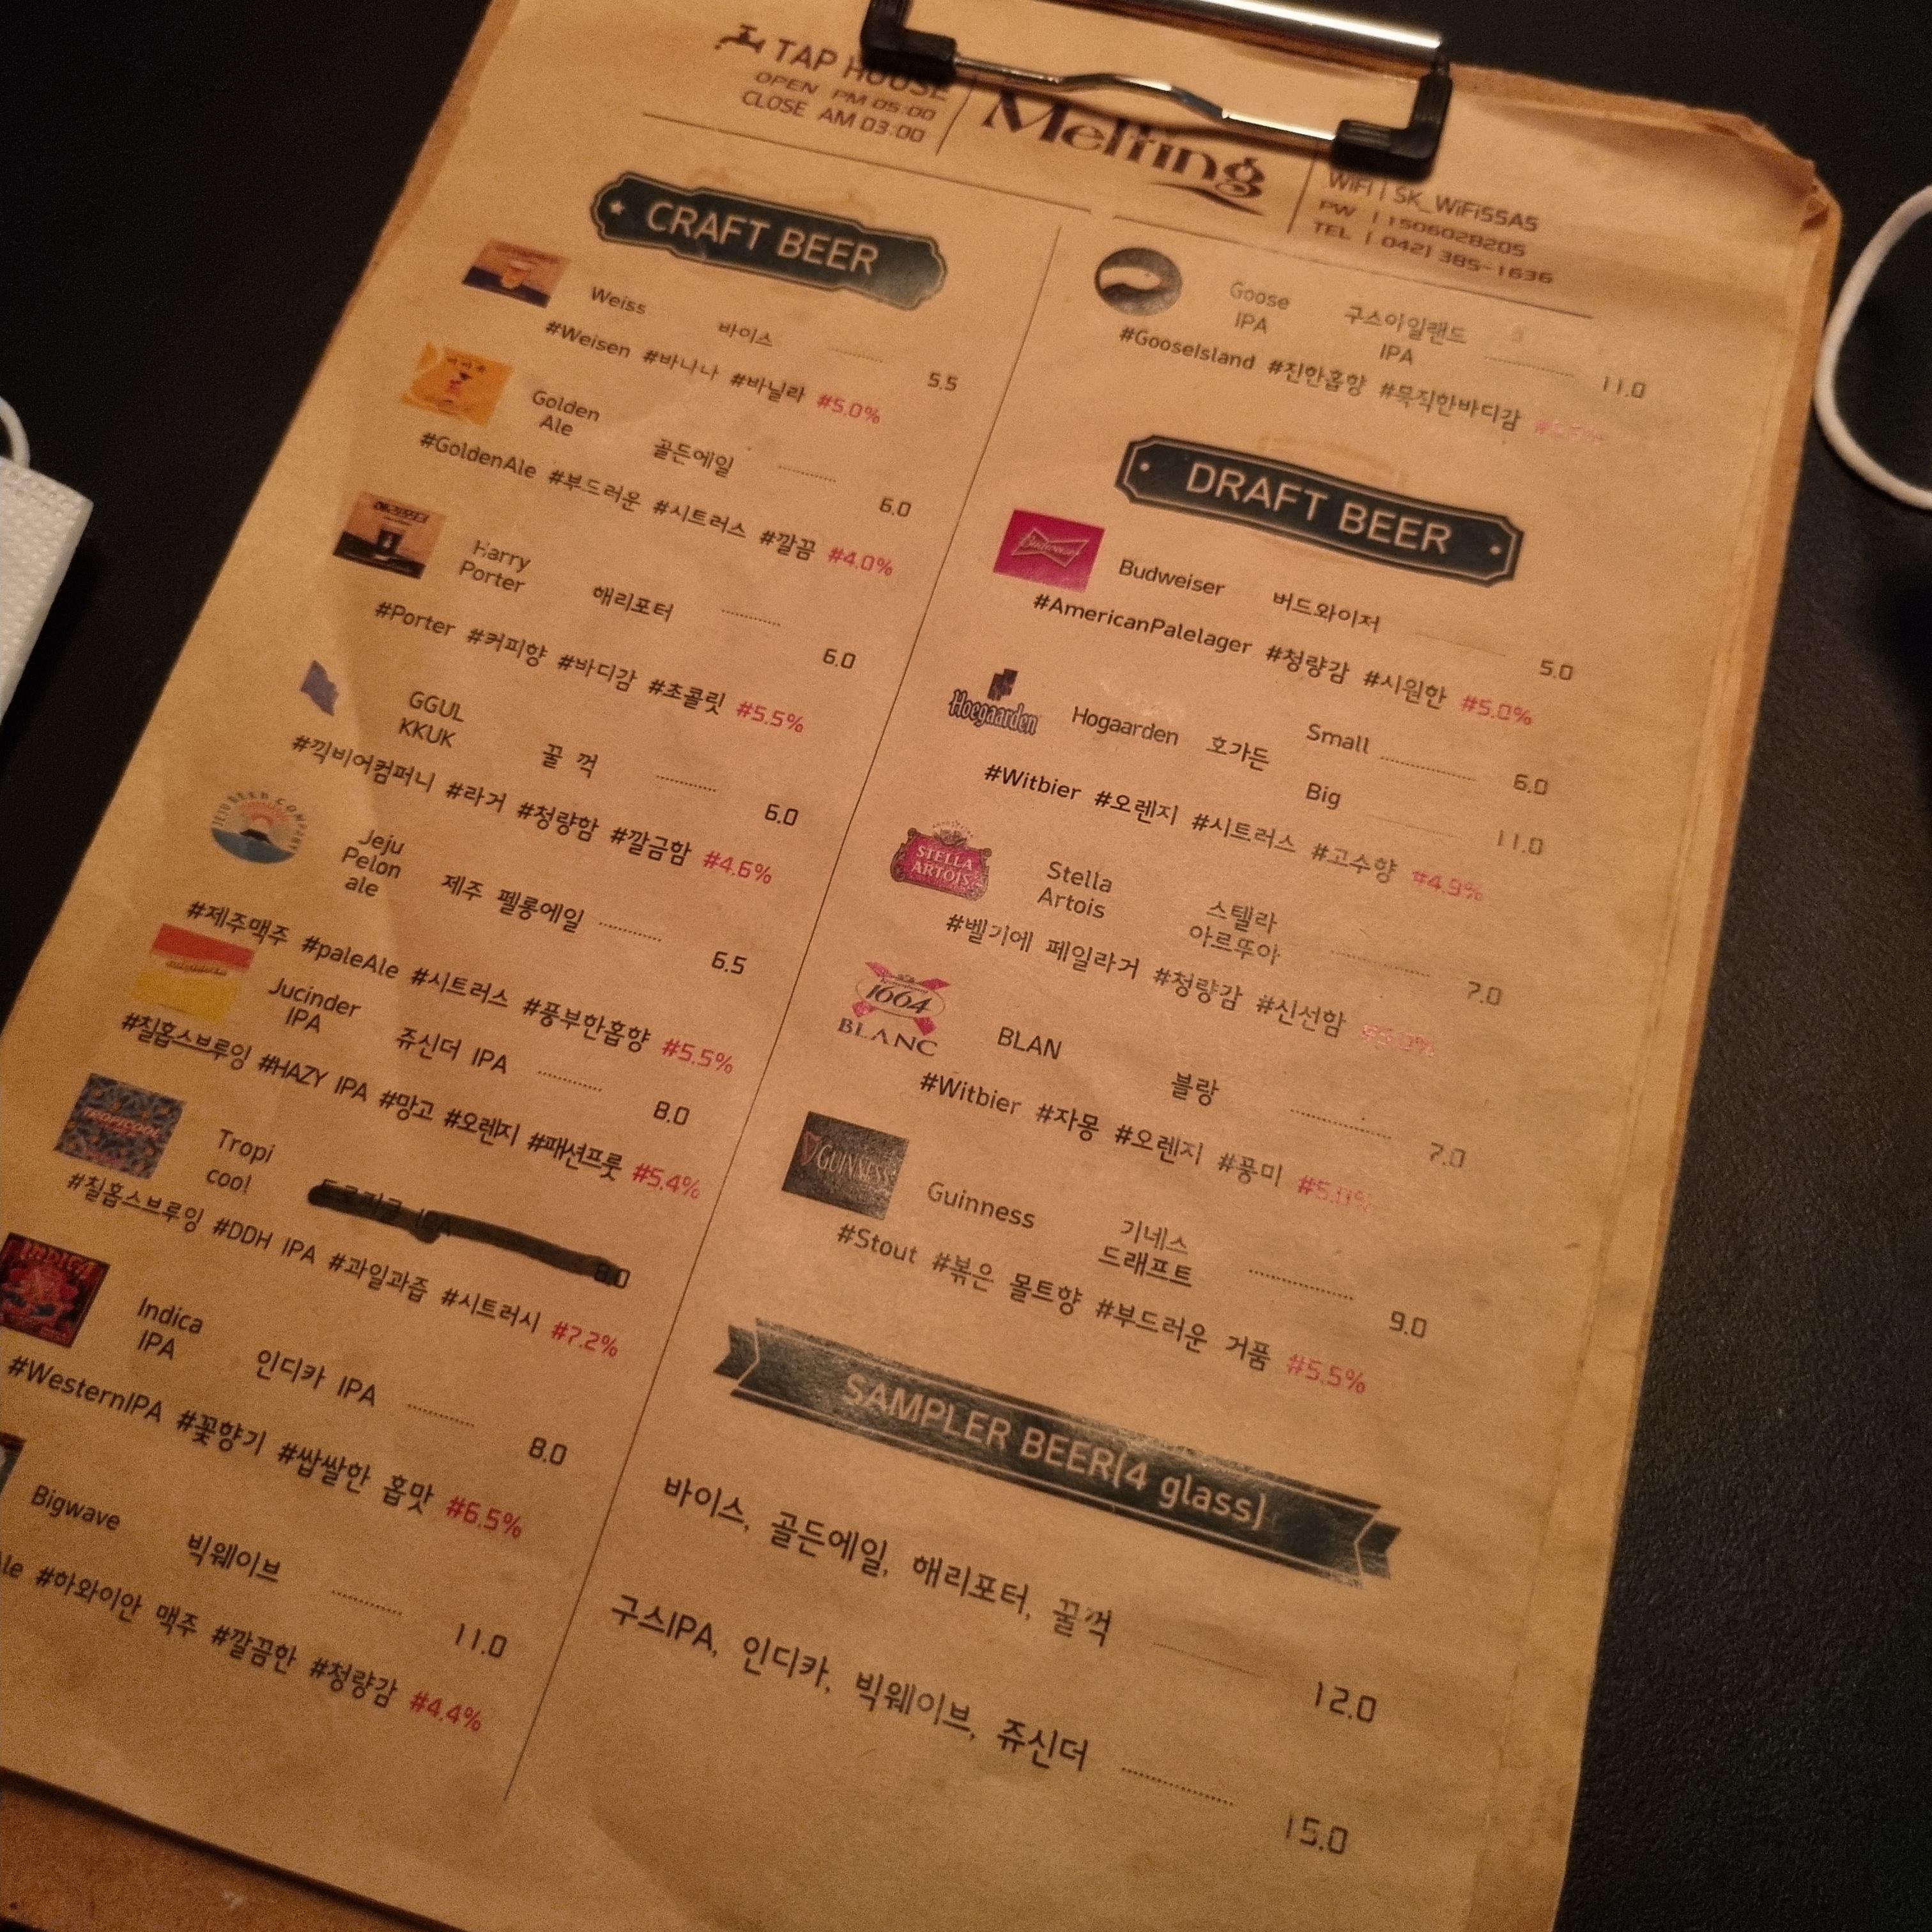 TAP HOUSE
OPEN PM 05:00
CLOSE AM 03:00
Melting
WiFi | SK_WiFi55A5
PW | 1506028205
TEL | 042) 385-1636
CRAFT BEER
Weiss 바이스 5.5
#Weisen #바나나 #바닐라 #5.0%
Golden
Ale 골든에일 6.0
#GoldenAle #부드러운 #시트러스 #깔끔 #4.0%
해리포터
Harry
Porter 해리포터 6.0
#Porter #커피향 #바디감 #초콜릿 #5.5%
GGUL
KKUK 꿀 꺽 6.0
#끽비어컴퍼니 #라거 #청량함 #깔금함 #4.6%
JEJU BEER COMPANY
Jeju
Pelon
ale 제주 펠롱에일 6.5
#제주맥주 #paleAle #시트러스 #풍부한홉향 #5.5%
Jucinder
IPA 쥬신더 IPA 8.0
#칠홉스브루잉 #HAZY IPA #망고 #오렌지 #패션프룻 #5.4%
TROPICOOL
Tropi
cool 8.0
#칠홉스브루잉 #DDH IPA #과일과즙 #시트러시 #7.2%
INDICA
Indica
IPA 인디카 IPA 8.0
#WesternIPA #꽃향기 #쌉쌀한 홉맛 #6.5%
Bigwave 빅웨이브 11.0
#하와이안 맥주 #깔끔한 #청량감 #4.4%
Goose
IPA 구스아일랜드
IPA 11.0
#GooseIsland #진한홉향 #묵직한바디감
DRAFT BEER
Budweiser
Budweiser 버드와이저 5.0
#AmericanPalelager #청량감 #시원한 #5.0%
Hoegaarden
Hogaarden 호가든 Small 6.0
Big 11.0
#Witbier #오렌지 #시트러스 #고수향 #4.9%
STELLA
ARTOIS
Stella
Artois 스텔라
아르뚜아 7.0
#벨기에 페일라거 #청량감 #신선함
1664
BLANC
BLAN 블랑 7.0
#Witbier #자몽 #오렌지 #풍미 #5.0%
GUINNESS
Guinness 기네스
드래프트 9.0
#Stout #볶은 몰트향 #부드러운 거품 #5.5%
SAMPLER BEER(4 glass)
바이스, 골든에일, 해리포터, 꿀꺽 12.0
구스IPA, 인디카, 빅웨이브, 쥬신더 15.0